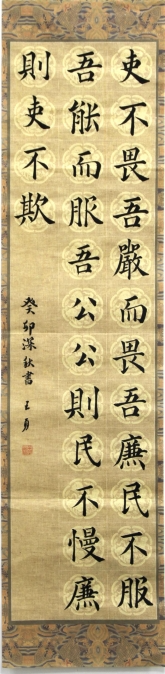 吏不畏吾嚴而畏吾廉民不服
吾能而服吾公公則民不慢廉
則吏不欺
癸卯深秋書 王勇